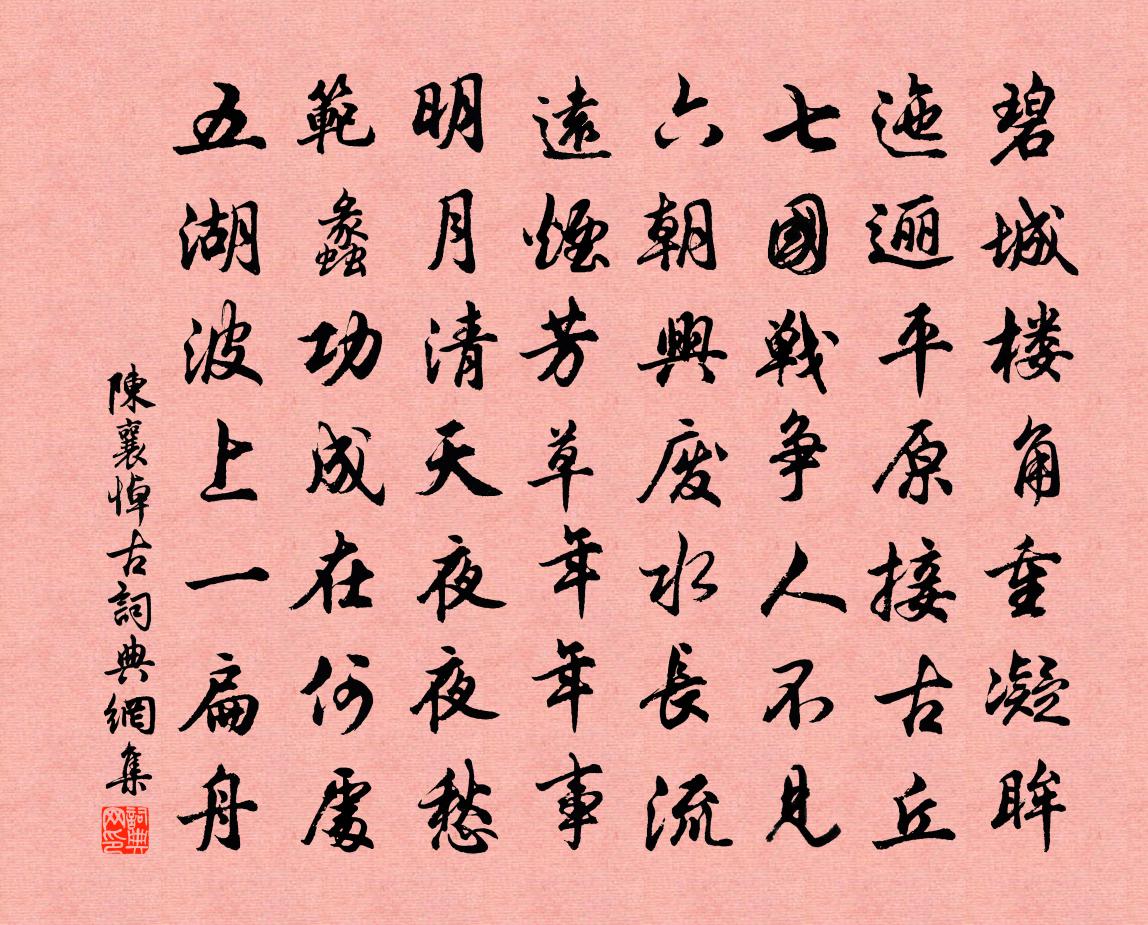 碧城楼角重凝眸
迤逦平原接古丘
七國戦争人不見
六朝興废水長流
遠煙芳草年年事
明月清天夜夜愁
範蠡功成在何處
五湖波上一扁舟
陳襄悼古詞典網集
詞典网印